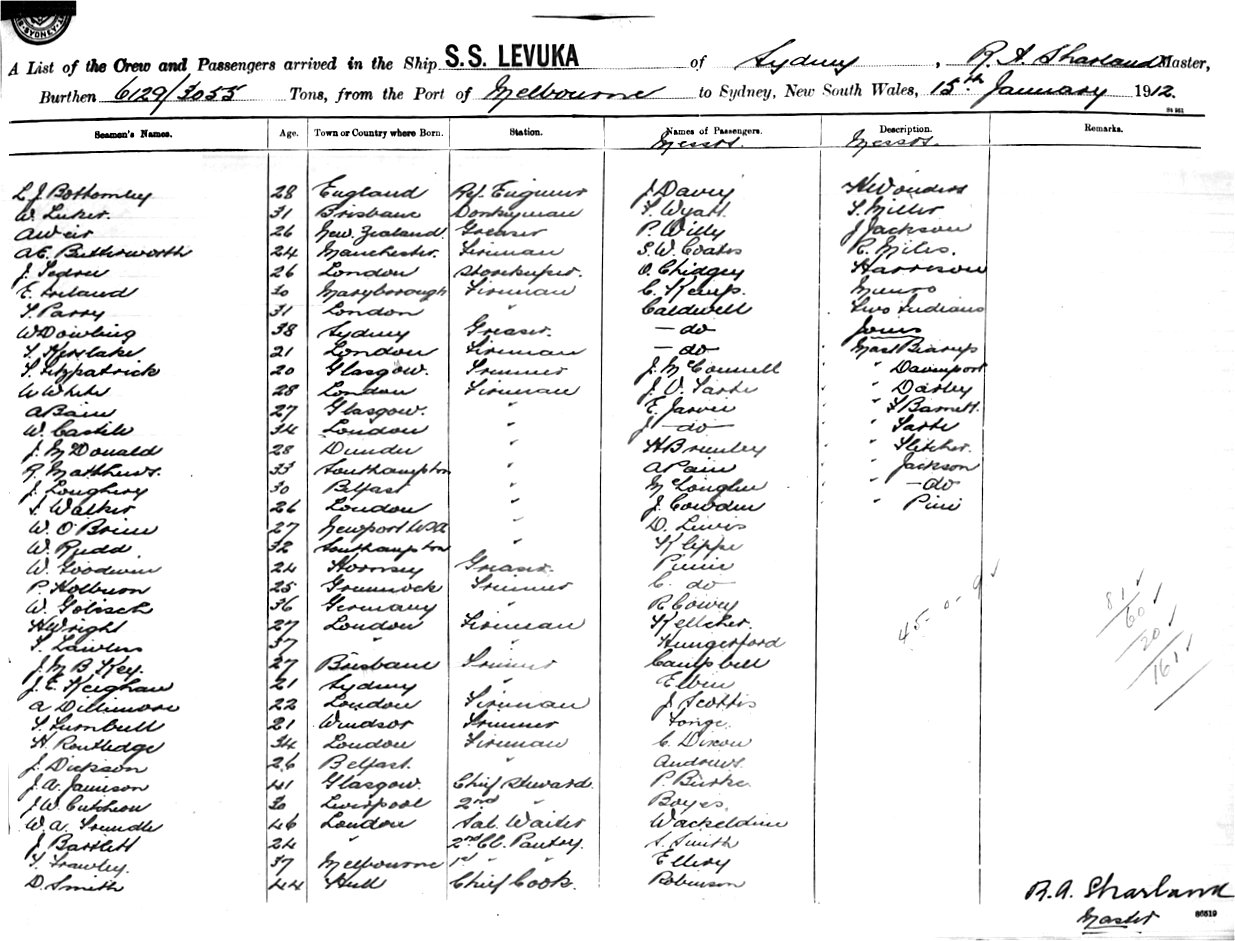 SYDNEY
A List of the Crew and Passengers arrived in the Ship S.S. LEVUKA of Sydney, R. A. Sharland Master,
Burthen 6129/3055 Tons, from the Port of Melbourne to Sydney, New South Wales, 15th January 1912.
Seamen's Names. Age. Town or Country where Born. Station. Names of Passengers. Description. Remarks.
Messrs. Messrs.
L J Bothomley 28 England Ref. Engineer J Davey H Wonders
W. Luker. 31 Brisbane Donkeyman T. Wyatt T. Miller
A Weir 26 New Zealand. Greaser P. Willy J Jackson
A. E. Butterworth 24 Manchester. Fireman S. W. Coates R. Miles.
J. 26 London Storekeeper. O. Chidgey Harrison
E. Ireland 30 Maryborough Fireman C. Kemp. Munro
T Parry 31 London " Caldwell Two Indians
W Dowling 38 Sydney Greaser. — do Jones
T. Kerslake 21 London Fireman — do Mast
T. Fitzpatrick 20 Glasgow. Trimmer J. McConnell " Davenport
W White 28 London Fireman J. O. " Darley
A Bain 27 Glasgow. " E. " F Barnett.
W. Castle 34 London " J — do "
J. McDonald 28 Dundee " H Bromley " Fletcher.
R. Matthews. 33 Southampton " A Pain " Jackson
J. Loughery 30 Belfast " " — do
T. Walker 26 London " J. Cowden "
W. O'Brien 27 Newport W.A " D. Lewis
W. Rudd 32 Southampton "
W. Goodwin 24 Hornsey Greaser.
P. Holburn 25 Greenock Trimmer C. do
W. 36 Germany " R Cowey
H Wright 27 London Fireman
T. Lawless 37 " " Hungerford
J. M B Key. 27 Brisbane Trimmer Campbell
J. E. Keighan 21 Sydney "
A Dillimore 22 London Fireman J.
T. Turnbull 21 Windsor Trimmer Tonge
H. Routledge 34 London Fireman C. Dixon
J. Dickson 26 Belfast. " Andrews.
J. A. Jamison 41 Glasgow. Chief Steward. P. Burke
J. W. Cutcheon 30 Liverpool 2nd " Boyes.
W. A. Trundle 46 London Sal. Waiter Wackeldine
J Bartlett 24 " 2nd Cl. Pantry. S. Smith
T. Frawley. 37 Melbourne 1st " Ellery
D. Smith 44 Hull Chief Cook. Robinson
45-0-9
81
60
20
161
R. A. Sharland
Master
86519